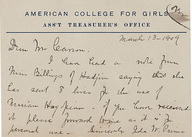 AMERICAN COLLEGE FOR GIRLS
ASS'T TREASURER'S OFFICE
March 13 - 1909
Dear Mr Pearson.
I have had a note from
Miss Billings of Hadjin saying that she
has sent 8 liras for the use of
Mission Hospital - if you have received
it please forward to me as it is for
personal use. - Sincerely Ida W. Prime